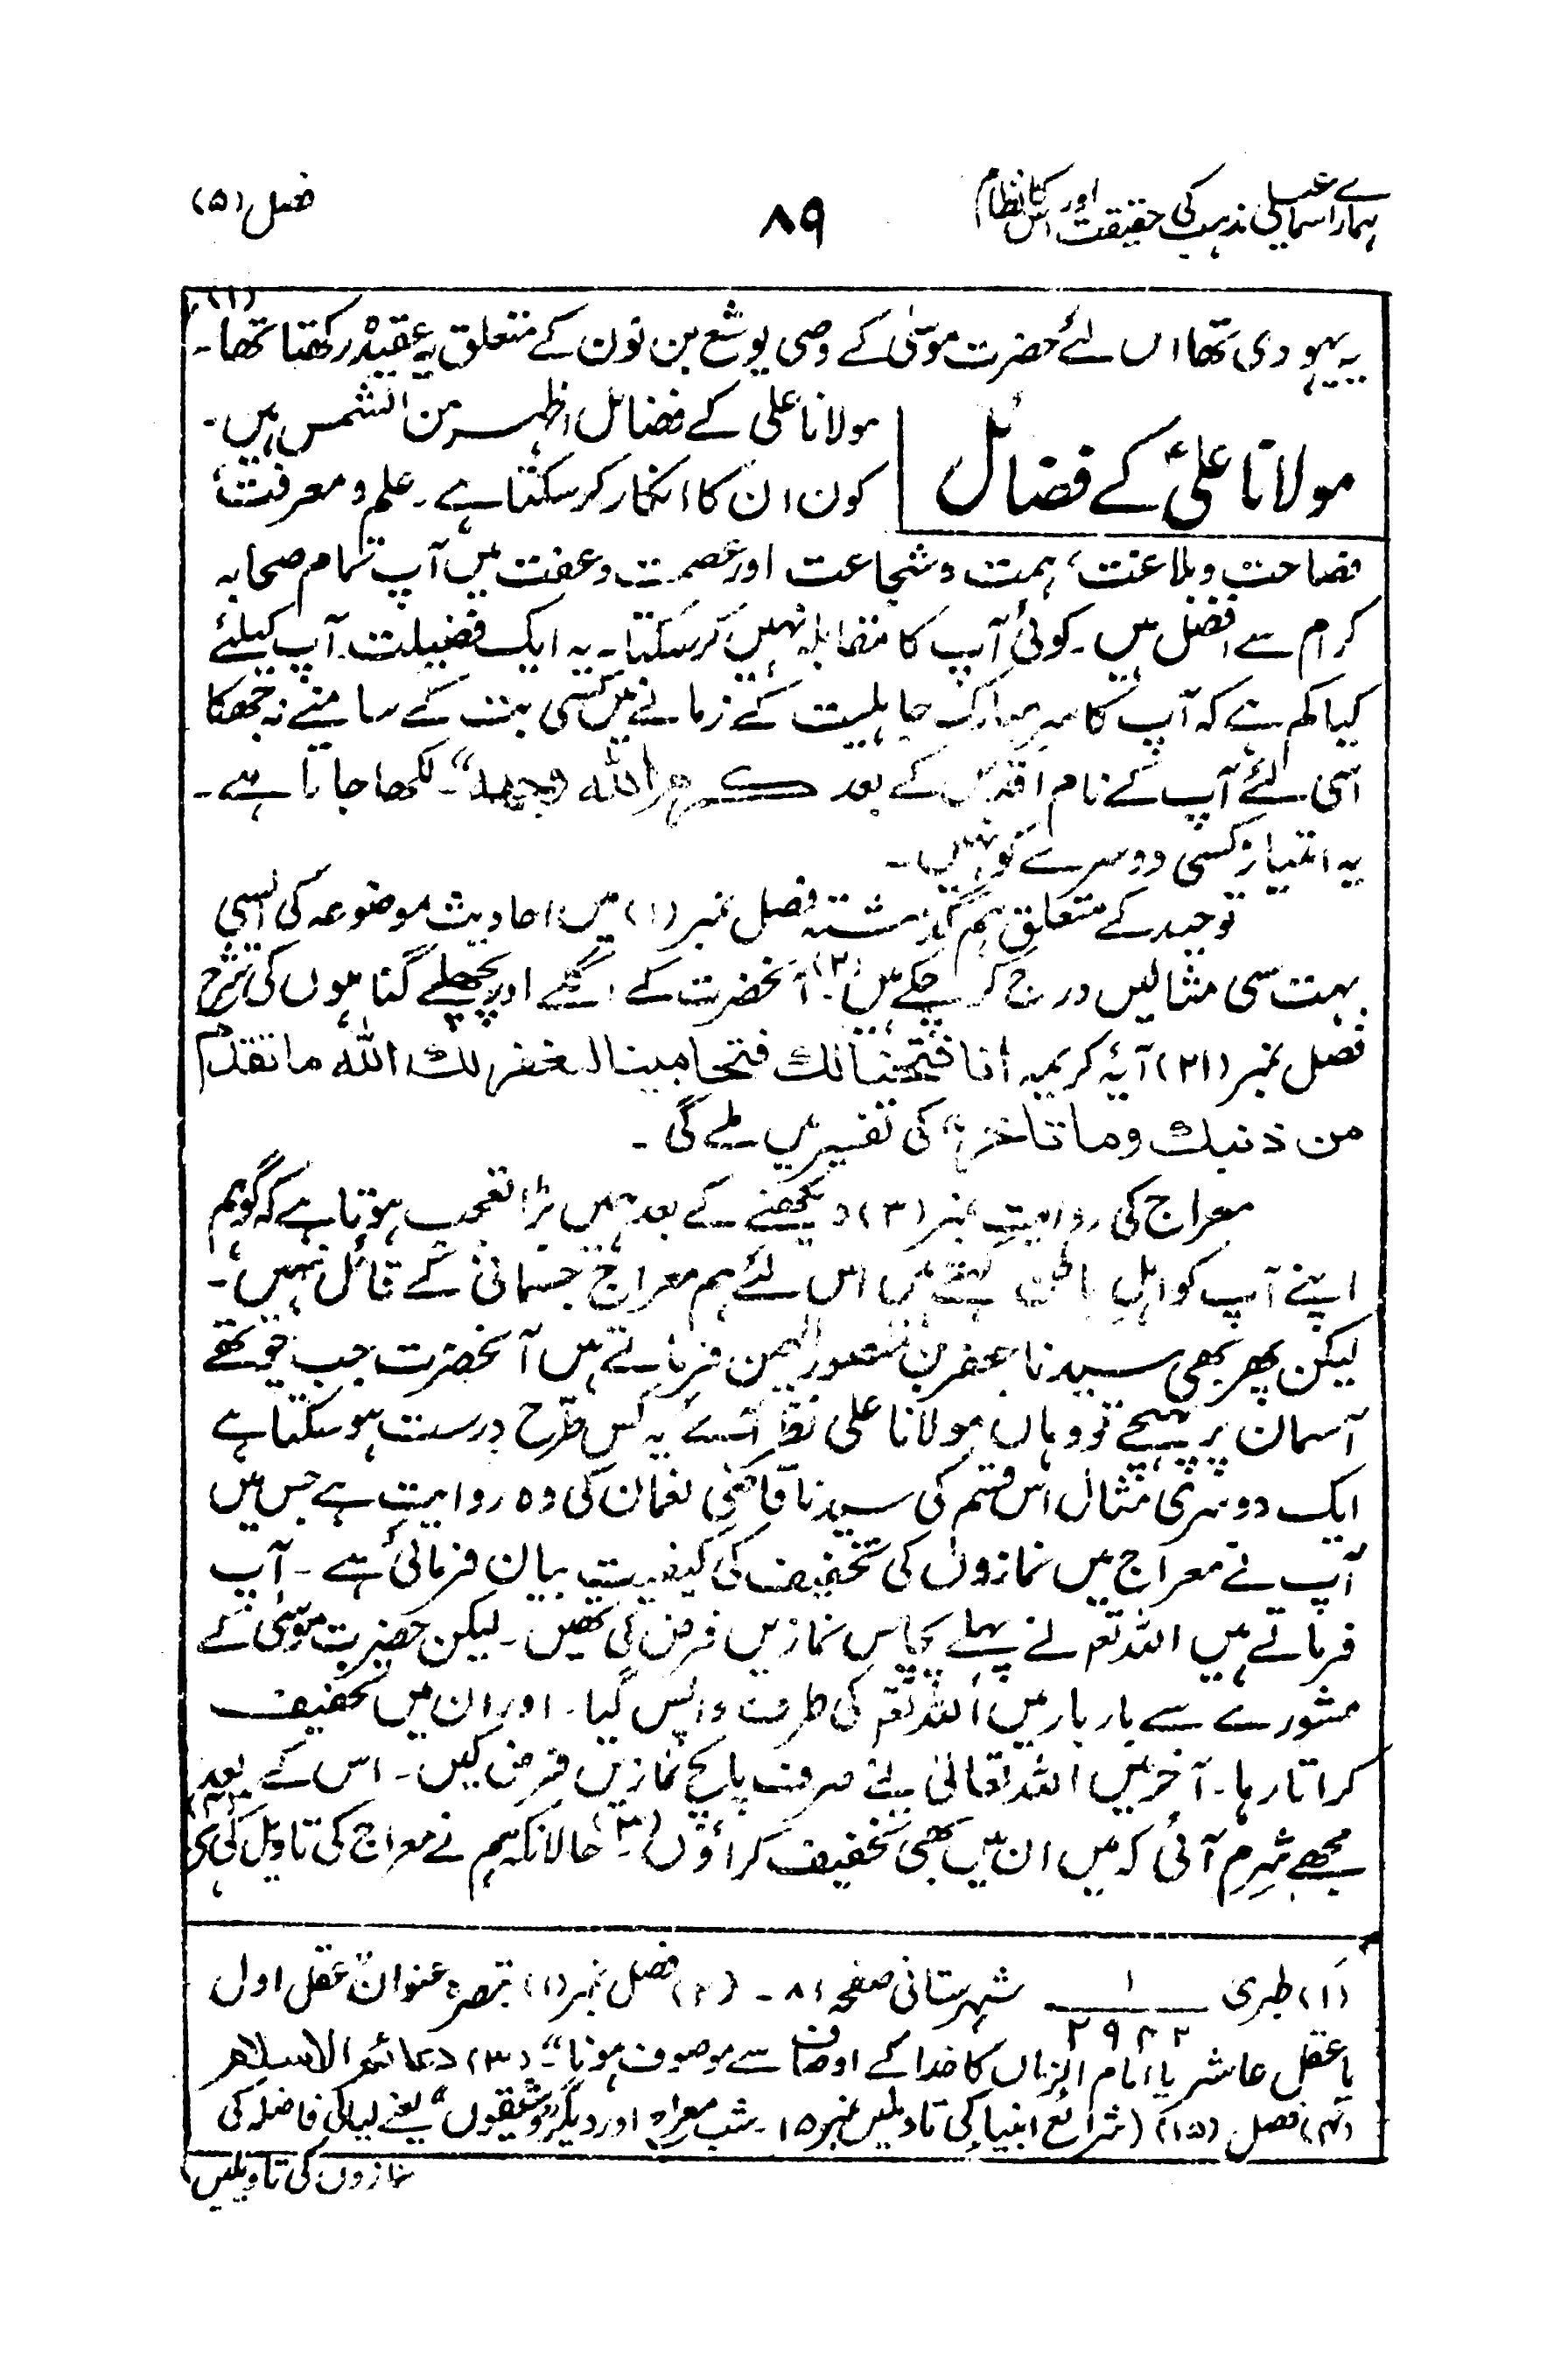 ہمارے اسماعیلی مذہب کی حقیقت اور اس کا نظام
۸۹
فصل (۵)
یہ یہودی تھا اس لئے حضرت موسیٰ کے وصی یوشع بن نون کے متعلق یہ عقیدہ رکھتا تھا۔ (۱)
مولانا علیؑ کے فضائل
مولانا علی کے فضائل اظہر من الشمس ہیں۔
کون ان کا انکار کر سکتا ہے۔ علم و معرفت،
فصاحت و بلاغت، ہمت و شجاعت اور عصمت و عفت میں آپ تمام صحابہ
کرام سے افضل ہیں۔ کوئی آپ کا مقابلہ نہیں کر سکتا۔ یہ ایک فضیلت آپ کیلئے
کیا کم ہے کہ آپ کا سر مبارک جاہلیت کے زمانے میں کسی بت کے سامنے نہ جھکا
اسی لئے آپ کے نام اقدس کے بعد کرم اللہ وجہہ“ لکھا جاتا ہے۔
یہ امتیاز کسی دوسرے کو نہیں۔
توحید کے متعلق ہم گذشتہ فصل نمبر (۱) میں احادیث موضوعہ کی ایسی
بہت سی مثالیں درج کر چکے ہیں (۲)۔ آنحضرت کے اگلے اور پچھلے گناہوں کی شرح
فصل نمبر (۲۱) آیۂ کریمہ انا فتحنا لك فتحا مبینا لیغفر لك اللہ ما تقدم
من ذنبك وما تاخر“ کی تفسیر میں ملے گی۔
معراج کی روایت نمبر (۳) دیکھنے کے بعد ہمیں بڑا تعجب ہوتا ہے کہ گو ہم
اپنے آپ کو اہل باطن کہتے ہیں اس لئے ہم معراج جسمانی کے قائل نہیں۔
لیکن پھر بھی سیدنا جعفر بن منصور الیمن فرماتے ہیں آنحضرت جب چوتھے
آسمان پر پہنچے تو وہاں مولانا علی نظر آئے یہ کس طرح درست ہو سکتا ہے
ایک دوسری مثال اس قسم کی سیدنا قاضی نعمان کی وہ روایت ہے جس میں
آپ نے معراج میں نمازوں کی تخفیف کی کیفیت بیان فرمائی ہے۔ آپ
فرماتے ہیں اللہ تعم نے پہلے پچاس نمازیں فرض کی تھیں۔ لیکن حضرت موسیٰ کے
مشورے سے بار بار میں اللہ تعم کی طرف واپس گیا۔ اور ان میں تخفیف
کراتا رہا۔ آخر میں اللہ تعالیٰ نے صرف پانچ نمازیں فرض کیں۔ اس کے بعد
مجھے شرم آئی کہ میں ان میں بھی تخفیف کراؤں (۳)۔ حالانکہ ہم نے معراج کی تاویل کی ہے (۴)
(۱) طبری ۱/۲۹۴۲ شہرستانی صفحہ ۸۱۔ (۲) فصل نمبر (۱) تبصرہ عنوان ”عقل اول
یا عقل عاشر یا امام الزماں کا خدا کے اوصاف سے موصوف ہونا“۔ (۳) دعائم الاسلام
(۴) فصل (۱۵) (شرائع انبیا کی تاویلیں نمبر ۱۵۔ شب معراج اور دیگر روشیقوں“ یعنے لیالی فاضلہ کی
نمازوں کی تاویلیں)